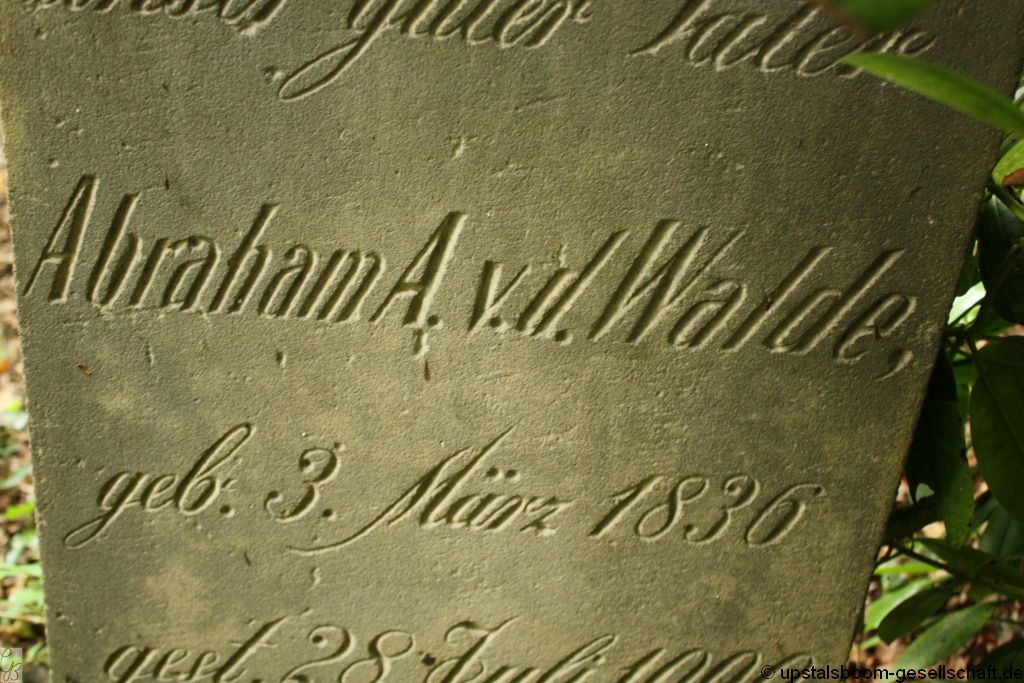 guter Vater
Abraham A. v. d. Walde,
geb. 3. März 1836
gest 28 Juli
© upstalsboom-gesellschaft.de